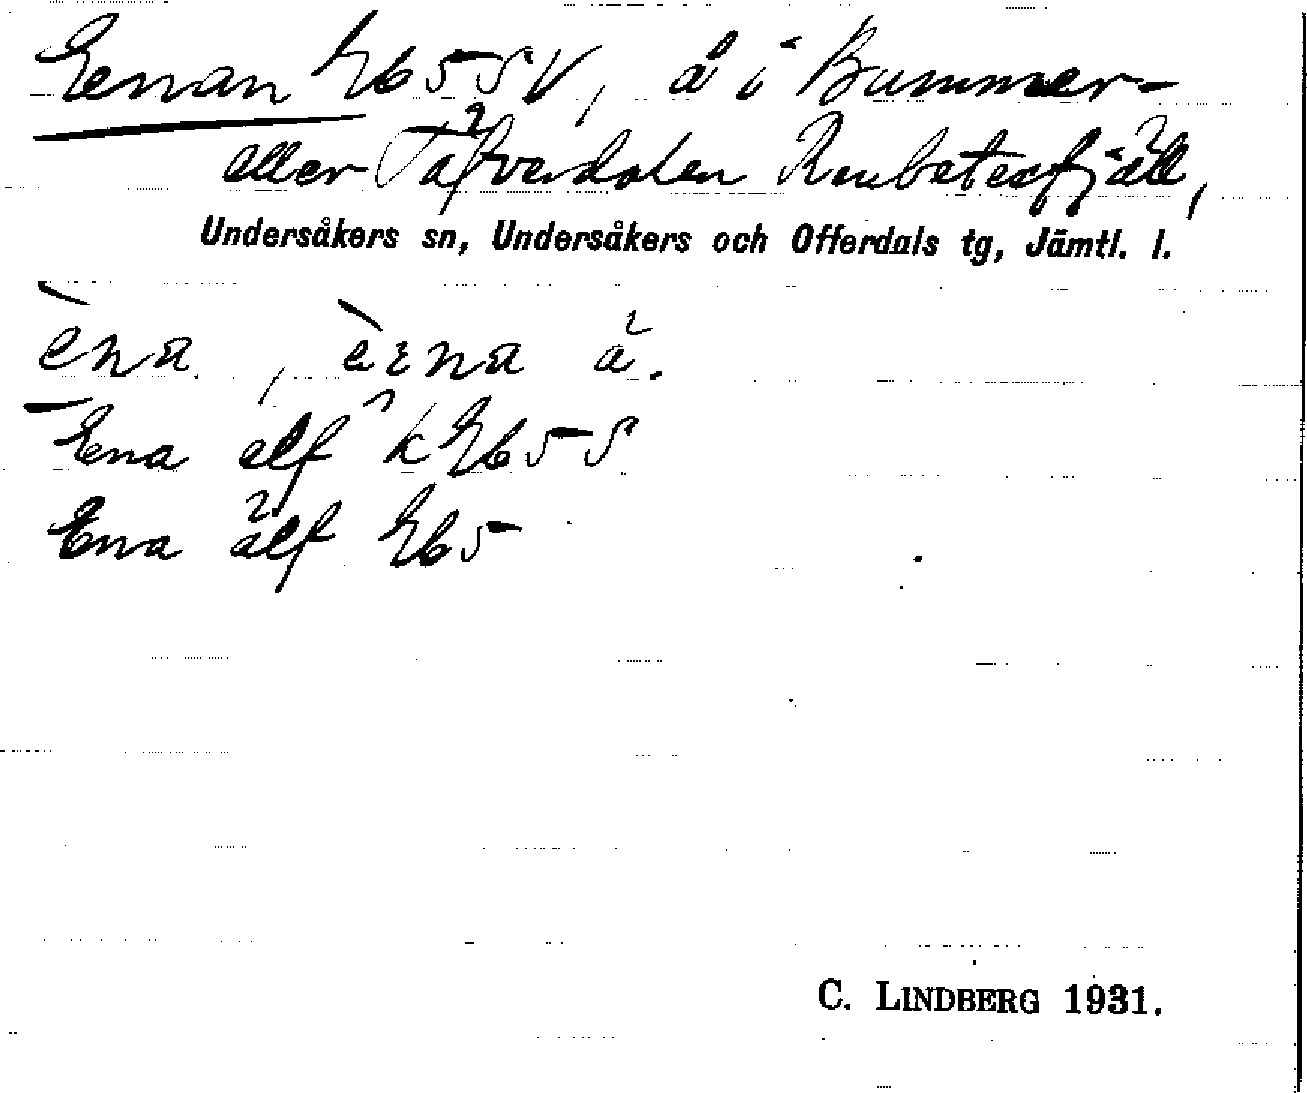 Eenan Eb5SV, å i Bummer-
eller Täfverdalen Renbetesfjäll,
Undersåkers sn, Undersåkers och Offerdals tg, Jämtl. l.
èna, èɛna å.
Ena elf k Eb5S
Ena älf Eb5
C. LINDBERG 1931.